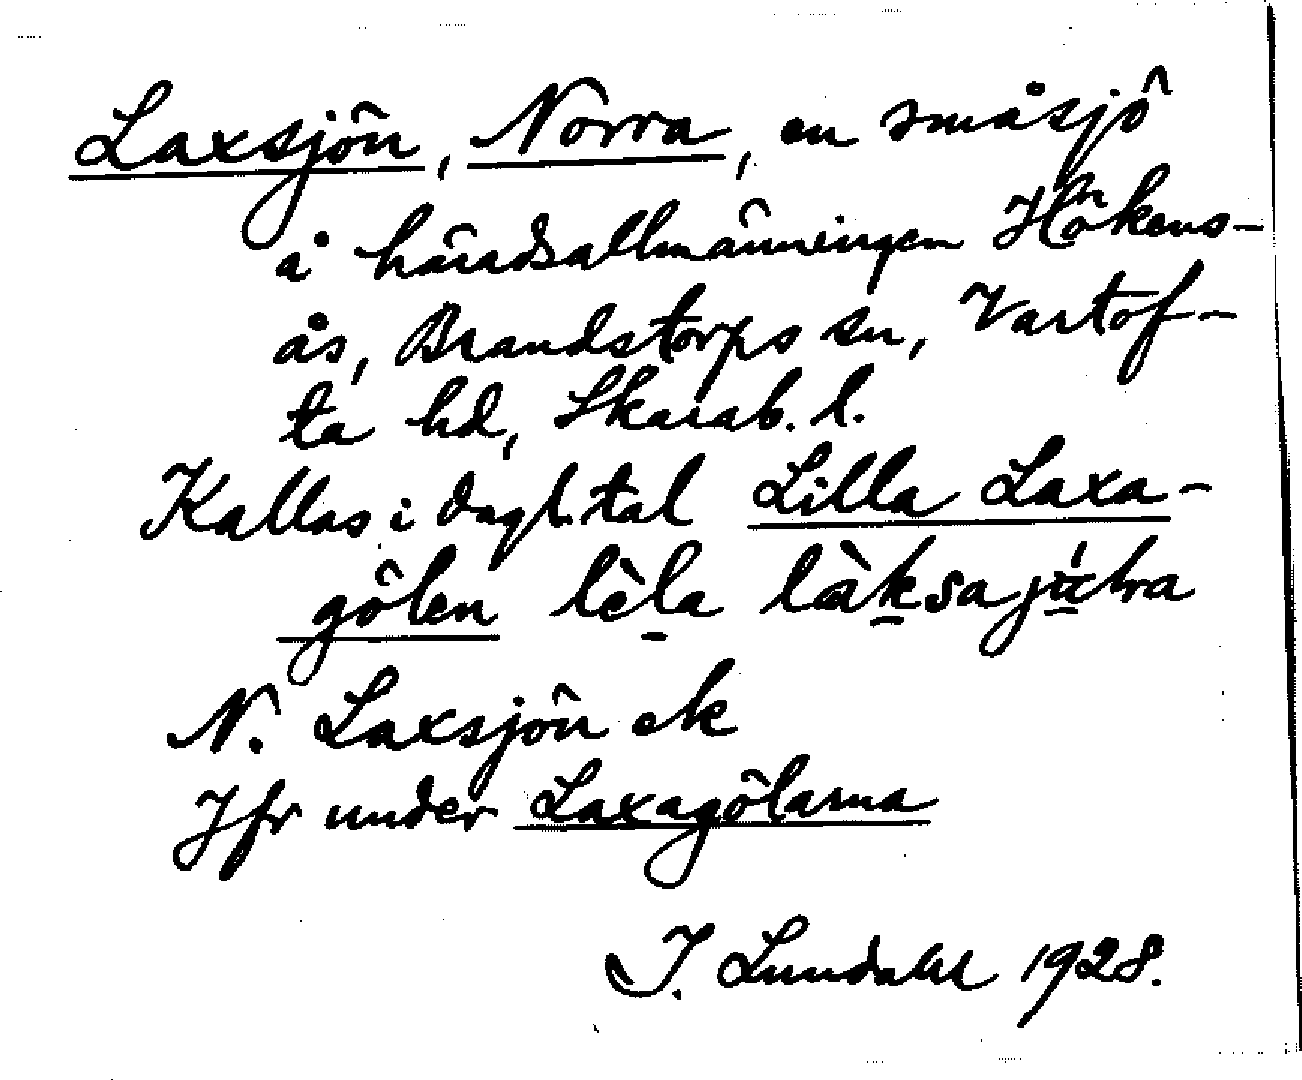 Laxsjön, Norra, en småsjö
å häradsallmänningen Hökens-
ås, Brandstorps sn, Vartof-
ta hd, Skarab. l.
Kallas i dagl. tal Lilla Laxa-
gölen lèla
N. Laxsjön ek
Jfr under Laxagölarna
I. Lundahl 1928.